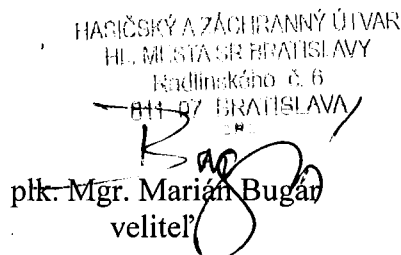 HASIČSKÝ A ZÁCHRANNÝ ÚTVAR
HL. MESTA SR BRATISLAVY
Radlinského č. 6
811 07 BRATISLAVA
plk. Mgr. Marián Bugár
veliteľ